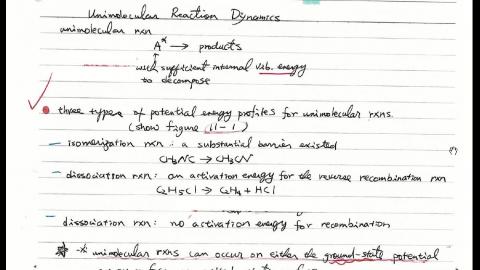 Unimolecular Reaction Dynamics
unimolecular rxn
A* → products
↑
with sufficient internal vib. energy
to decompose
three types of potential energy profiles for unimolecular rxns.
(show figure 11-1)
- isomerization rxn : a substantial barrier existed
CH3NC → CH3CN
- dissociation rxn : an activation energy for the reverse recombination rxn
C2H5Cl → C2H4 + HCl
- dissociation rxn : no activation energy for recombination
* unimolecular rxns can occur on either the ground-state potential